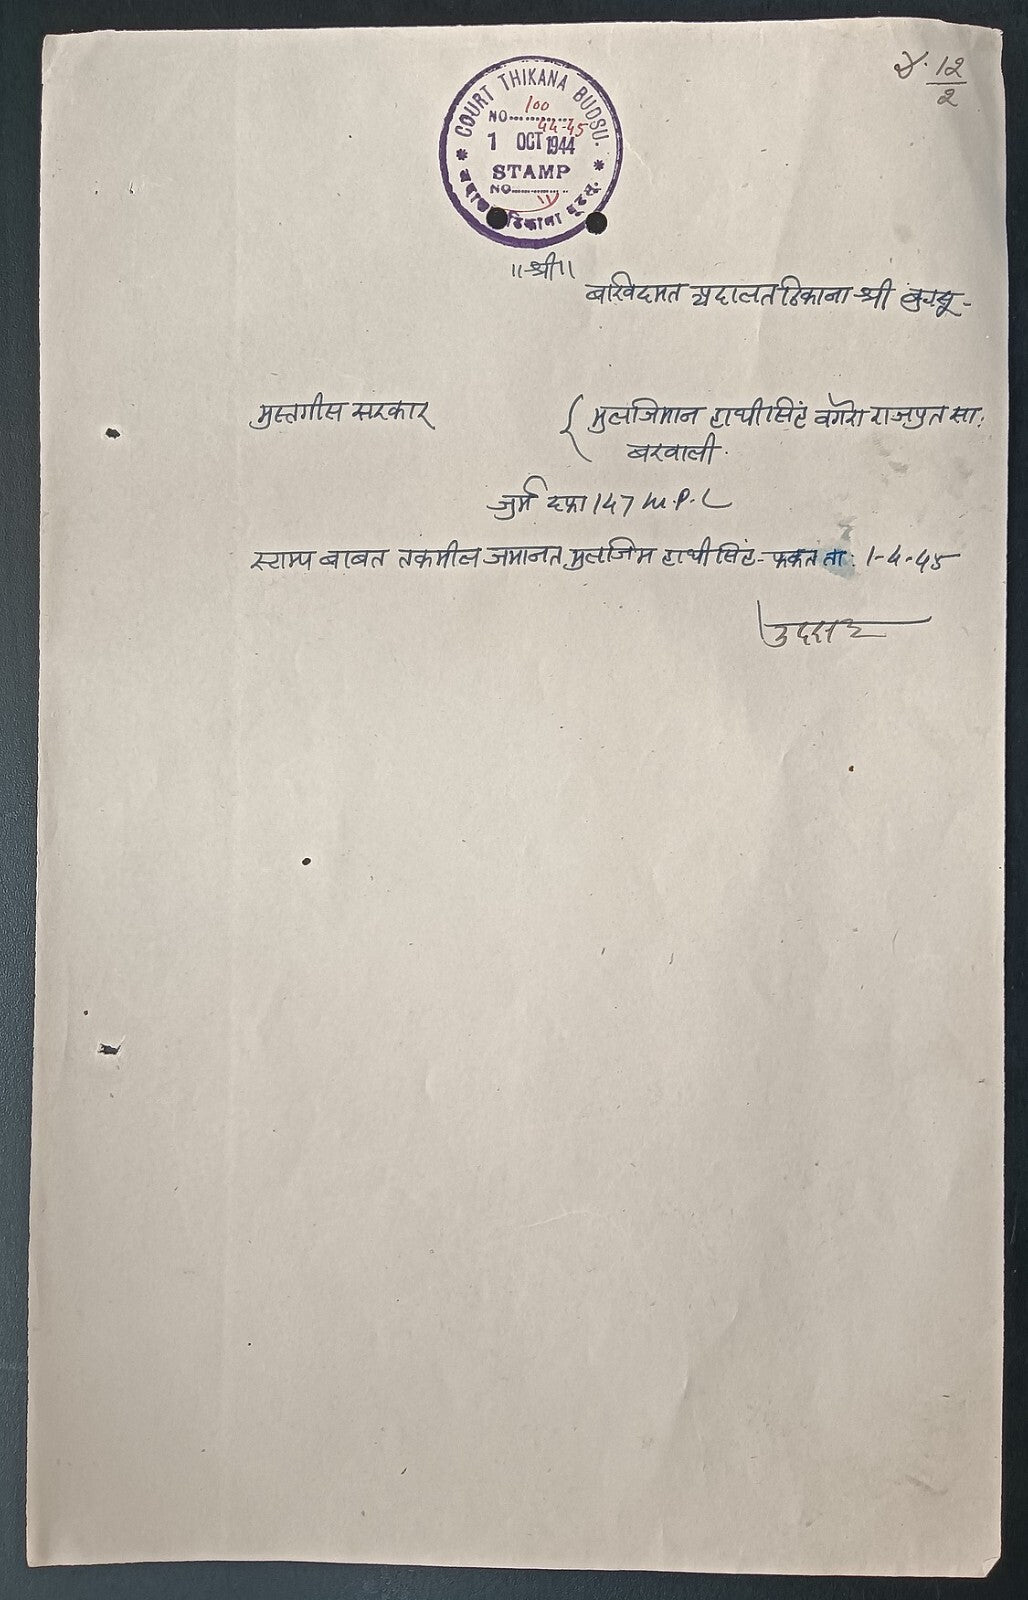 12
2
COURT THIKANA BUDSU.
NO. 100
44-45
1 OCT 1944
STAMP
NO.
ठिकाना बूडसू.
॥श्री॥
बखिदमत अदालत ठिकाना श्री बुडसू -
मुस्तगीस सरकार
{ मुलजिमान हाथीसिंह वगैरा राजपुत सा:
बरवाली.
जुर्म दफा 147 M.P.C
स्टाम्प बाबत तकमील जमानत मुलजिम हाथीसिंह - फकत ता: 1-4-45